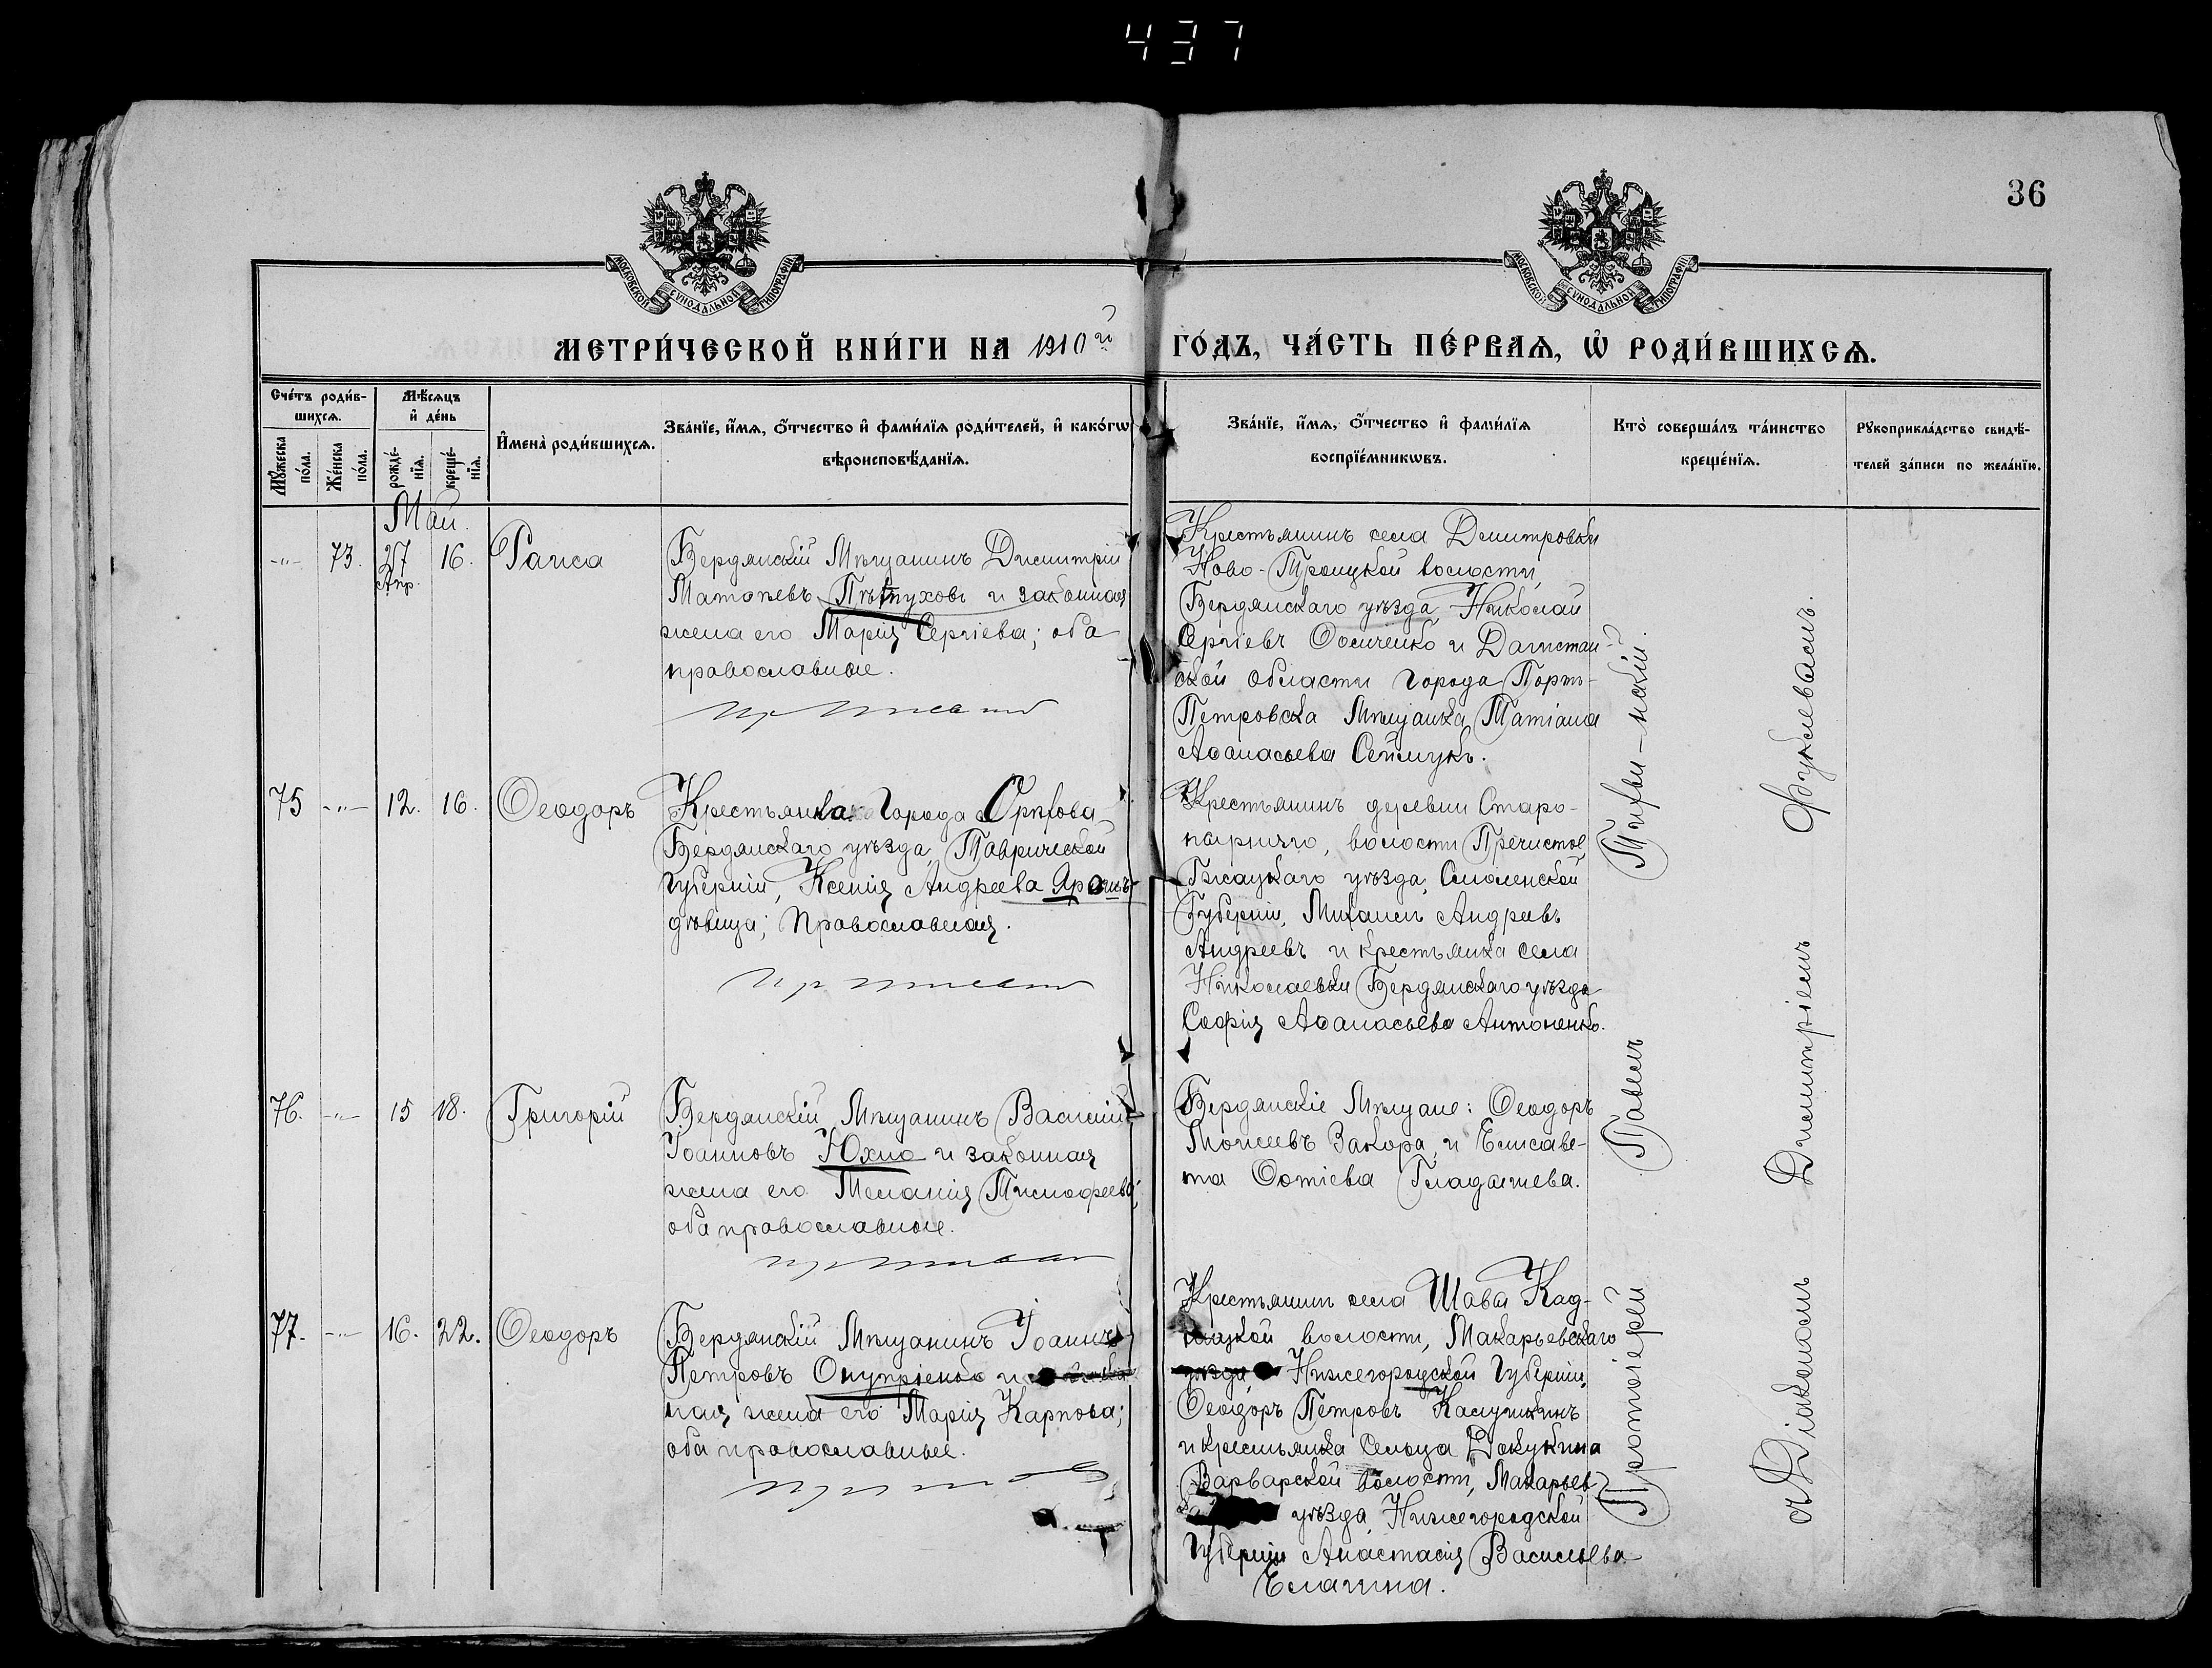 437
36
МОСКОВСКОЙ СУНОДАЛЬНОЙ ТИПОГРАФІИ
МОСКОВСКОЙ СУНОДАЛЬНОЙ ТИПОГРАФІИ
МЕТРИ́ЧЕСКОЙ КНИ́ГИ НА 1910й ГО́ДЪ, ЧА́СТЬ ПЕ́РВАѦ, Ѡ҆ РОДИ́ВШИХСѦ.
Сче́тъ роди́в-
шихсѧ.
Мꙋ́жеска по́ла.
Же́нска по́ла.
Мѣ́сѧцъ
и҆ де́нь
рожде́-
нїѧ.
креще́-
нїѧ.
И҆мена̀ роди́вшихсѧ.
Зва́нїе, и҆́мѧ, ѻ҆́тчество и҆ фами́лїѧ роди́телей, и҆ како́гѡ
вѣроисповѣ́данїѧ.
Зва́нїе, и҆́мѧ, ѻ҆́тчество и҆ фами́лїѧ
воспрїе́мникѡвъ.
Кто̀ соверша́лъ та́инство
креще́нїѧ.
Рꙋкоприкла́дство свидѣ́-
телей за́писи по жела́нїю.
Май.
-"- 73. 27 Апр. 16. Раиса
Бердянскій Мѣщанинъ Димитрій
Матѳеевъ Пѣтуховъ и законная
жена его Марія Сергіева; оба
православные.
Крестьянинъ села Дмитровки
Ново-Троицкой волости,
Бердянскаго уѣзда, Николай
Сергіевъ Осиченко и Дагистан-
ской области города Портъ-
Петровска Мѣщанка Татіана
Аѳанасьева
75 -"- 12. 16. Ѳеодоръ
Крестьянка города Орѣхова
Бердянскаго уѣзда, Таврической
Губерніи, Ксенія Андреева
дѣвица; Православная.
Крестьянинъ деревни Старо-
волости Пречистое
Гжатскаго уѣзда, Смоленской
Губерніи, Михаилъ Андреевъ
Андреевъ и крестьянка села
Николаевки Бердянскаго уѣзда
Софія Аѳанасьева Антоненко.
76. -"- 15 18. Григорій
Бердянскій Мѣщанинъ Василій
Іоанновъ Юхно и законная
жена его Меланія Тимоѳеева;
оба православные.
Бердянскіе Мѣщане: Ѳеодоръ
Моисеевъ Закора, и Елисаве-
та Фотіева Гладышева.
77. -"- 16. 22. Ѳеодоръ
Бердянскій Мѣщанинъ Іоаннъ
Петровъ Онупріенко и
ная жена его Марія Карпова;
оба православные.
Крестьянинъ села Шава Кад-
ницкой волости, Макарьевскаго
уѣзда, Нижегородской Губерніи,
Ѳеодоръ Петровъ Калушкинъ
и крестьянка сельца Докукина
Варварской волости, Макарьев-
уѣзда, Нижегородской
Губерніи Анастасія Васильева
Елагина.
Протоіерей Павелъ
съ Діакономъ Димитріемъ